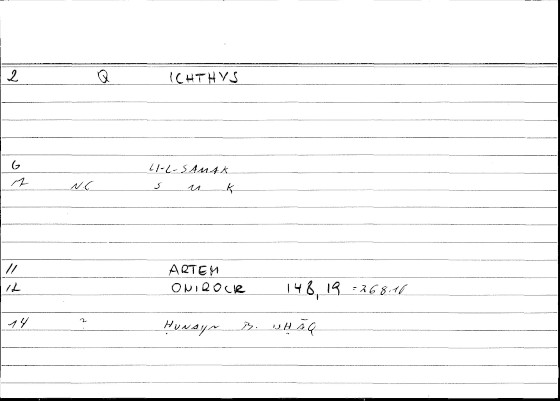 2 Q ICHTHYS
6 LI-L-SAMAK
12 NC S M K
11 ARTEM
12 ONIROCR 148,19 =268.10
14 ? Ḥunayn B. ISḤĀQ